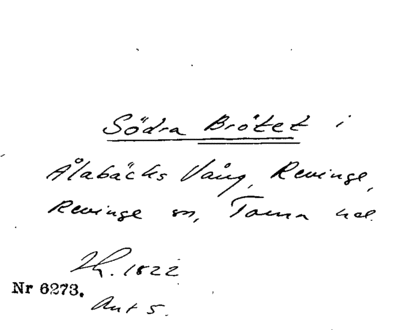 Södra Brötet i
Ålabäcks Vång, Revinge,
Revinge sn, Torna hd.
Lh. 1822
Nr 6273.
Akt 5.